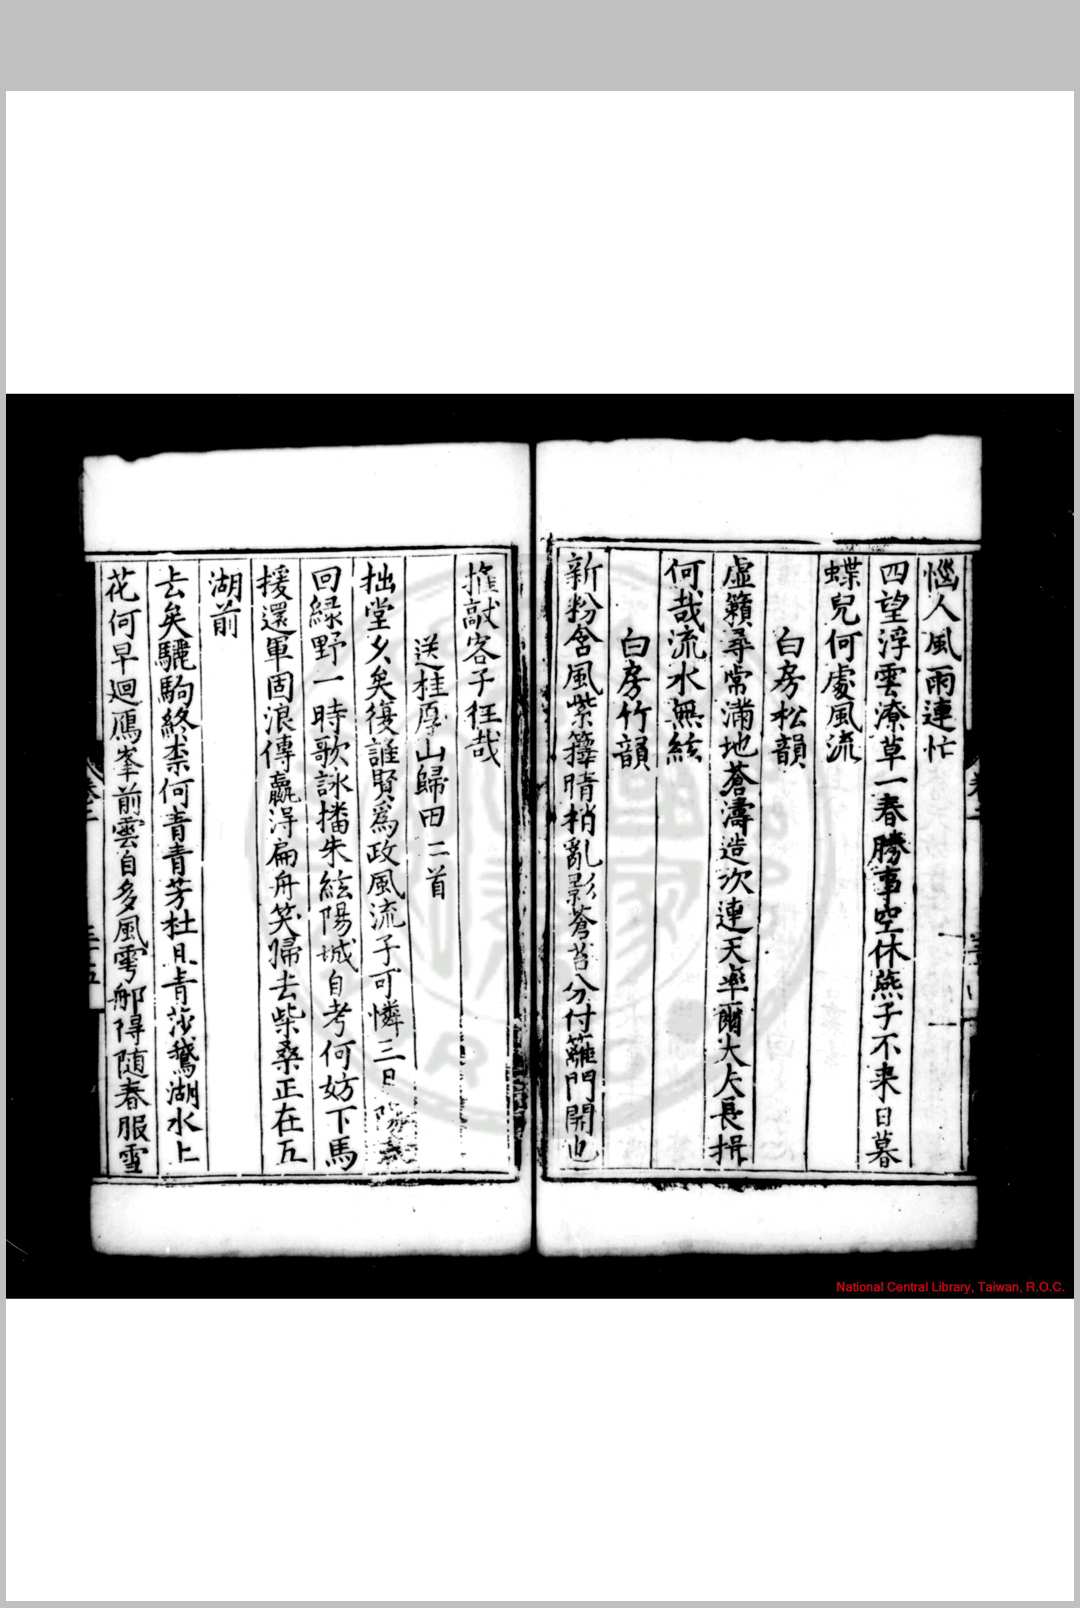 惱人風雨連忙
四望浮雲潦草一春勝事空休燕子不来日暮
蝶兒何處風流
白房松韻
虛籟尋常滿地蒼濤造次連天率爾大夫長揖
何哉流水無絃
白房竹韻
新粉含風紫籜晴梢亂影蒼苔分付籬門開也
推敲客子狂哉
送桂厚山歸田二首
拙堂久矣復誰賢爲政風流子可憐三月
回緑野一時歌詠播朱絃陽城自考何妨下馬
援還軍固浪傳贏得扁舟笑歸去柴桑正在五
湖前
去矣驪駒終柰何青青芳杜且青莎鵝湖水上
花何早迴鴈峯前雲自多風雩那得随春服雪
卷三
三十五
National Central Library, Taiwan, R.O.C.